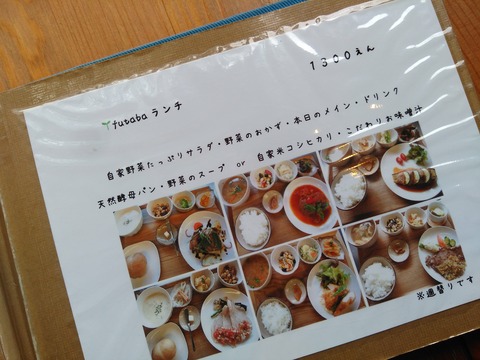 futabaランチ
1300えん
自家野菜たっぷりサラダ・野菜のおかず・本日のメイン・ドリンク
天然酵母パン・野菜のスープ or 自家米コシヒカリ・こだわりお味噌汁
※週替りです